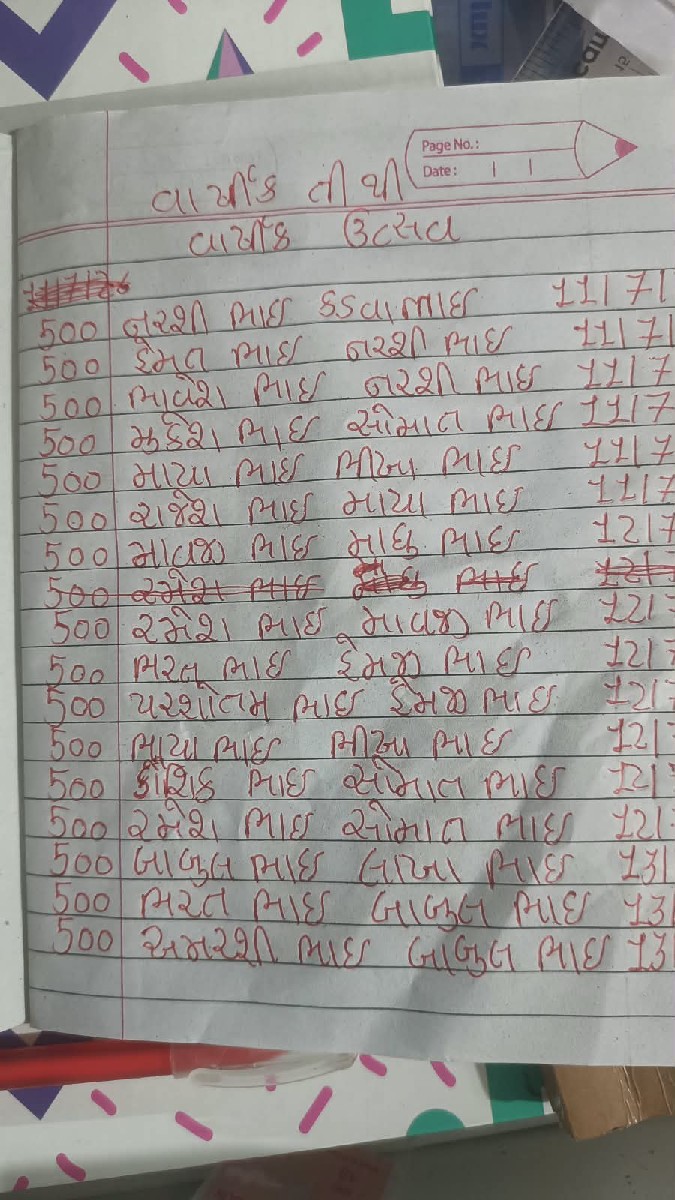 lux
cau
ar
Page No.:
Date:
વાર્ષીક તીથી
વાર્ષીક ઉત્સવ
11/7/26
500 નરશી ભાઇ કડવાભાઇ 11/7/
500 હેમત ભાઇ નરશી ભાઇ 11/7/
500 ભાવેશ ભાઇ નરશી ભાઇ 11/7
500 મુકેશ ભાઇ સોમાત ભાઇ 11/7
500 માયા ભાઇ ભીખા ભાઇ 11/7
500 રાજેશ ભાઇ માયા ભાઇ 11/7
500 માવજી ભાઇ માધુ ભાઇ 12/7
500 રમેશ ભાઇ ભાઇ 12/7
500 રમેશ ભાઇ માવજી ભાઇ 12/7
500 ભરત ભાઇ હેમજી ભાઇ 12/7
500 પરશોતમ ભાઇ હેમજી ભાઇ 12/7
500 ભાયા ભાઇ ભીખા ભાઇ 12/7
500 કૌશિક ભાઇ સોમાત ભાઇ 12/7
500 રમેશ ભાઇ સોમાત ભાઇ 12/7
500 બાબુલ ભાઇ લાખા ભાઇ 13/
500 ભરત ભાઇ બાબુલ ભાઇ 13/
500 અમરશી ભાઇ બાબુલ ભાઇ 13/